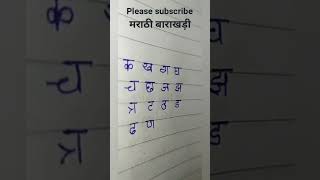 Please subscribe
मराठी बाराखड़ी
क ख ग घ
च छ ज झ
त्र ट ठ ड
ढ ण